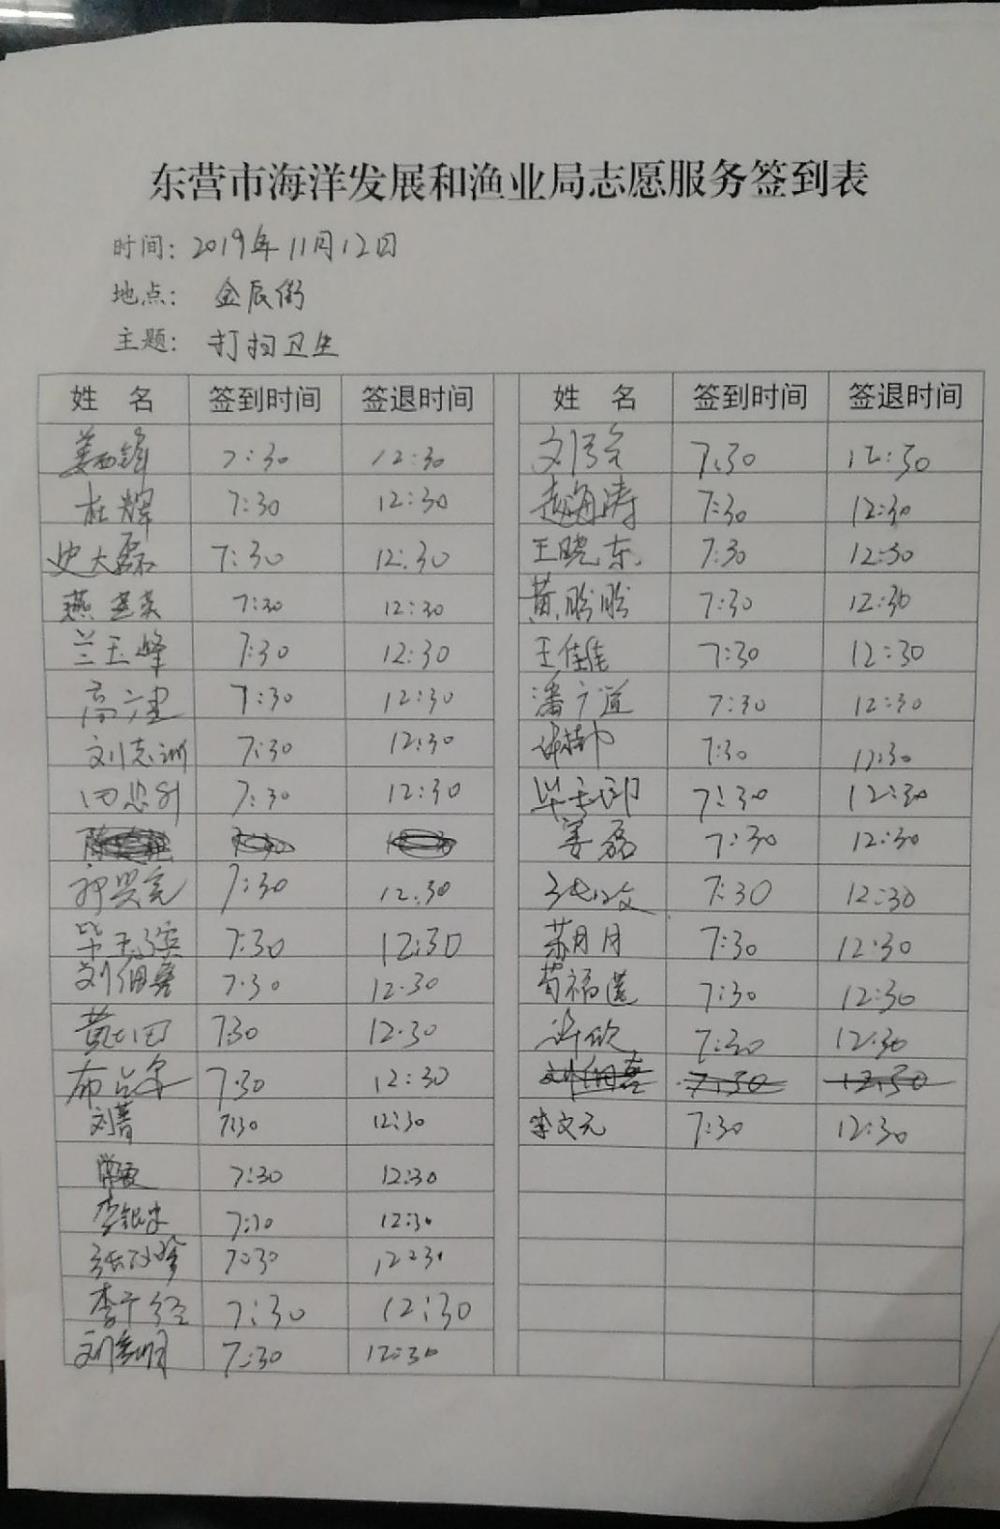 东营市海洋发展和渔业局志愿服务签到表
时间: 2019年11月12日
地点: 金辰街
主题: 打扫卫生
姓 名 签到时间 签退时间 姓 名 签到时间 签退时间
姜西锋 7:30 12:30 7:30 12:30
杜辉 7:30 12:30 赵海涛 7:30 12:30
史大磊 7:30 12:30 王晓东 7:30 12:30
燕 7:30 12:30 黄盼盼 7:30 12:30
兰玉峰 7:30 12:30 王佳佳 7:30 12:30
高建 7:30 12:30 潘广道 7:30 12:30
刘志训 7:30 12:30 7:30 12:30
7:30 12:30 毕 7:30 12:30
姜磊 7:30 12:30
祁兴亮 7:30 12:30 7:30 12:30
毕玉滨 7:30 12:30 苏月月 7:30 12:30
刘佃 7:30 12:30 荀福 7:30 12:30
黄 7:30 12:30 许欣 7:30 12:30
布 7:30 12:30 7:30 12:30
刘菁 7:30 12:30 李文元 7:30 12:30
7:30 12:30
李银忠 7:30 12:30
张 7:30 12:30
李 7:30 12:30
刘 7:30 12:30